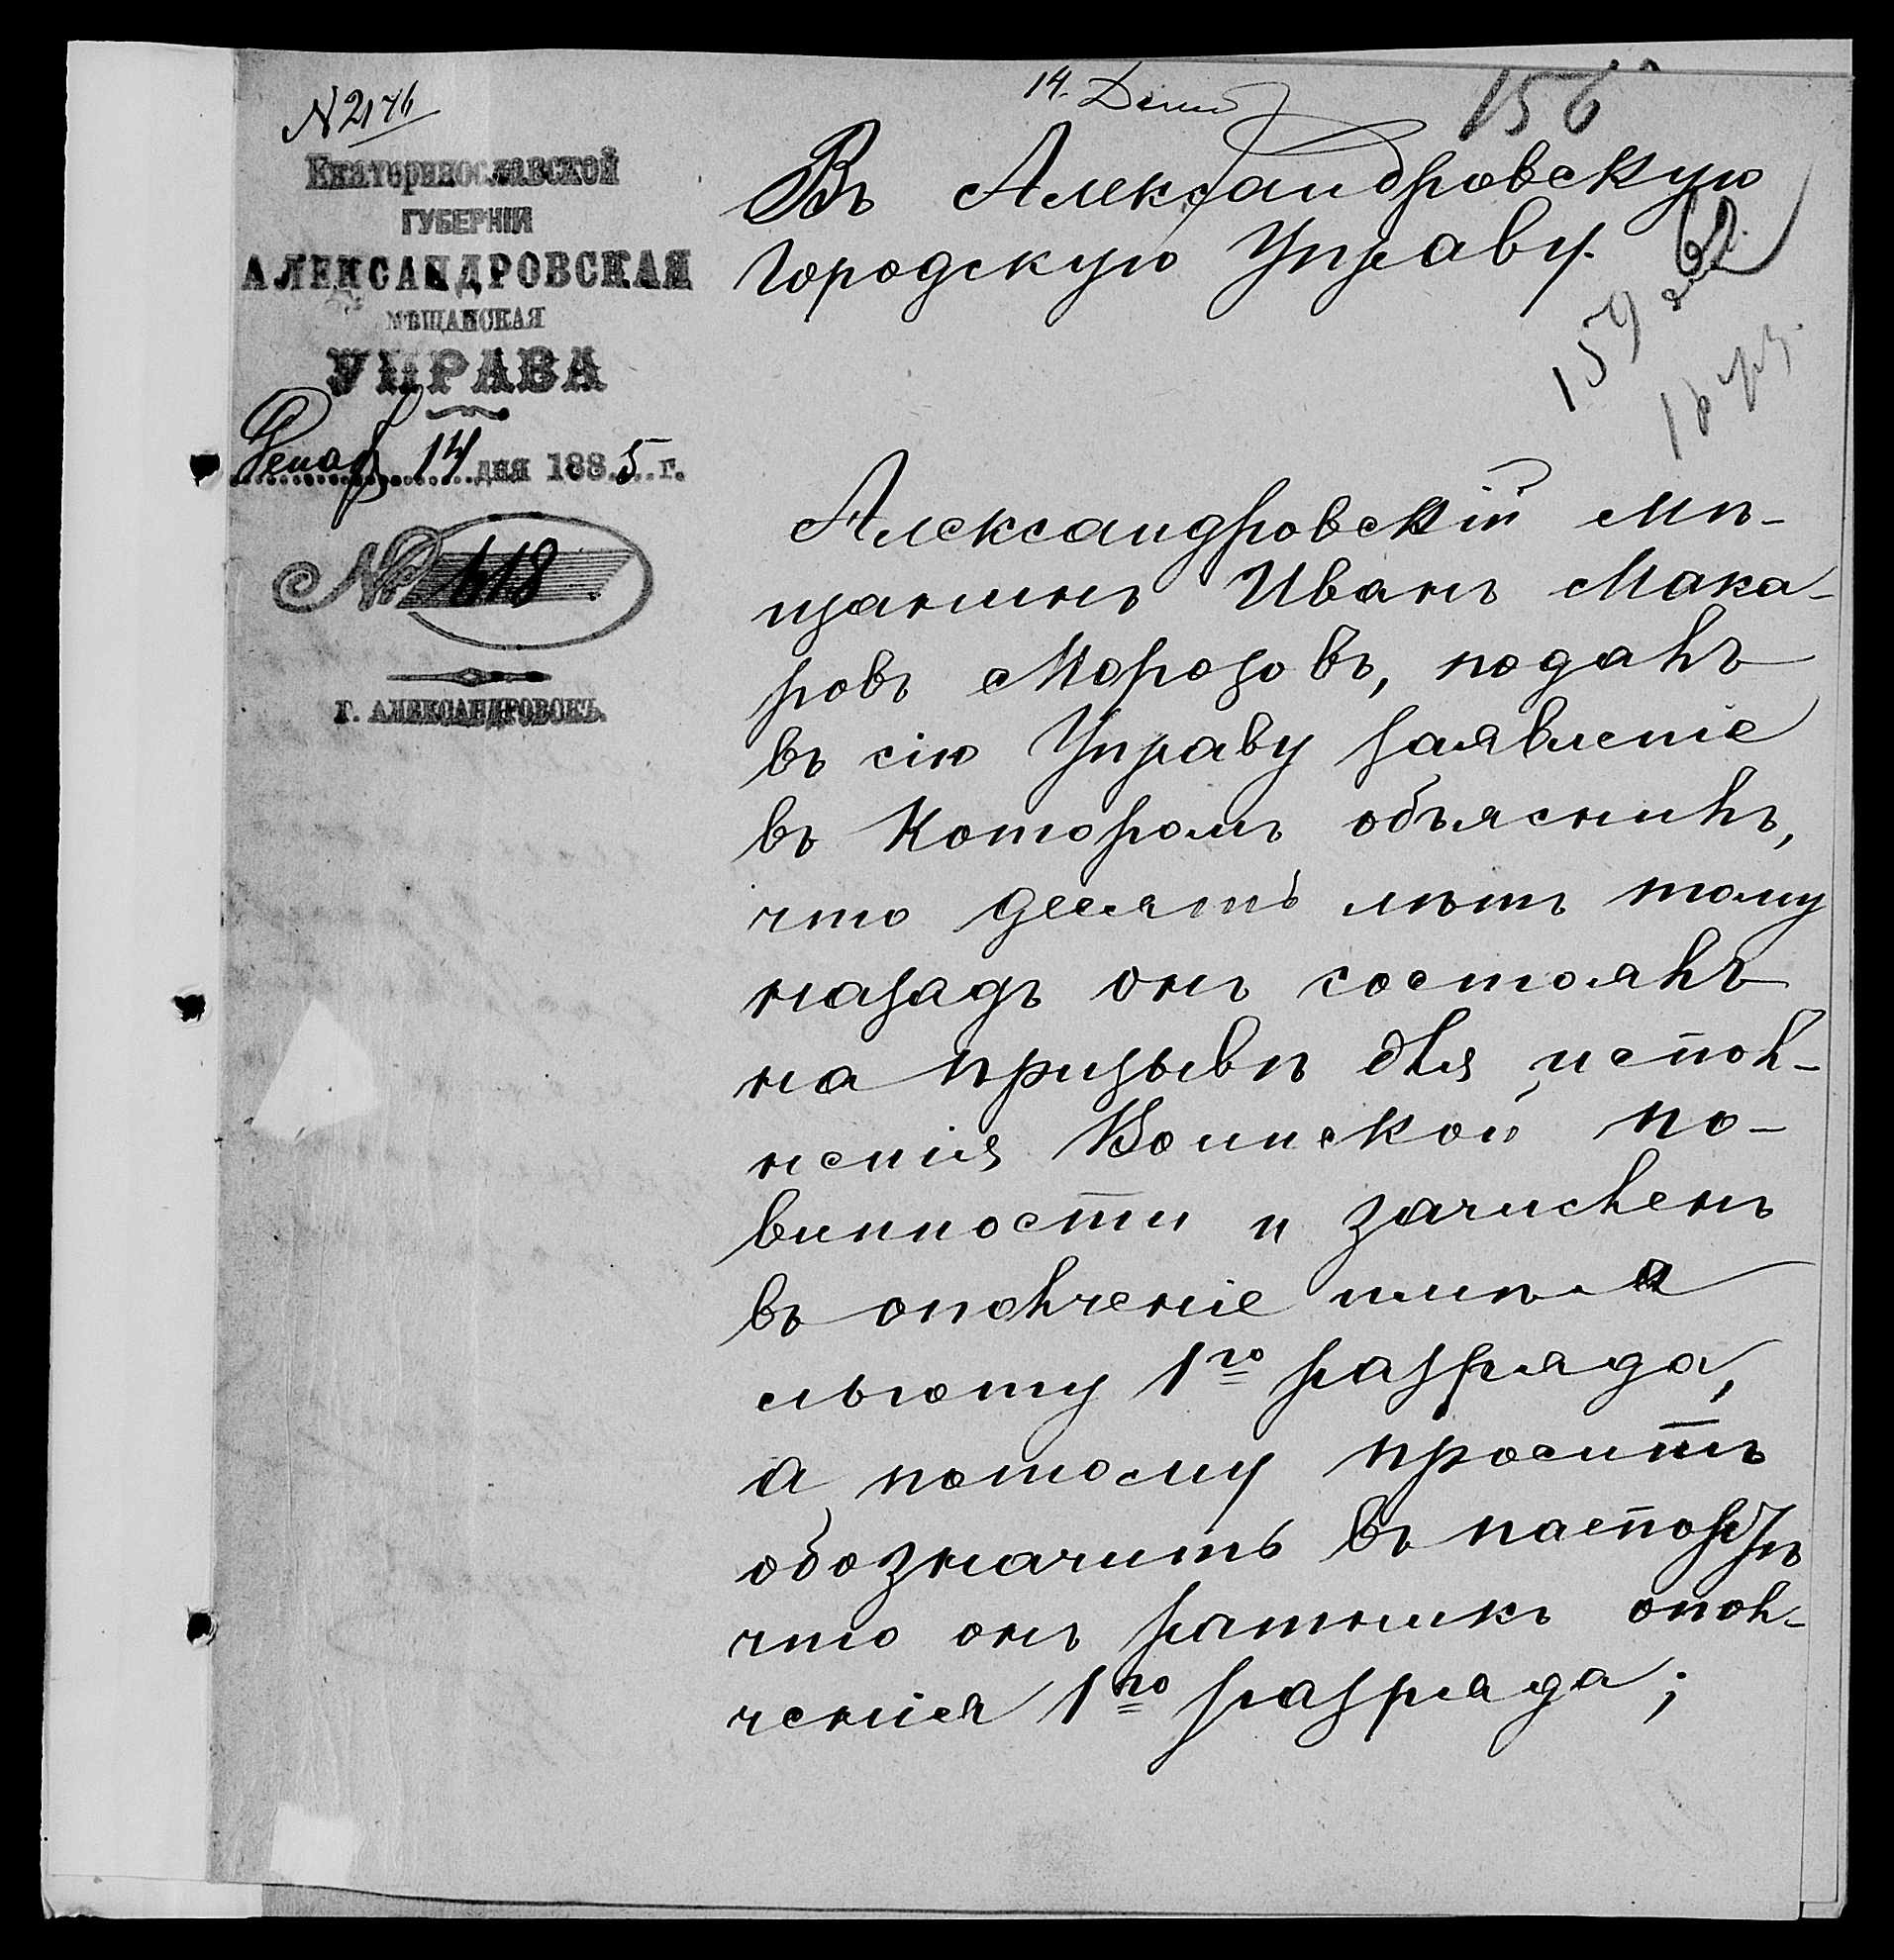 N 2176
Екатеринославской
ГУБЕРНІИ
АЛЕКСАНДРОВСКАЯ
МѢЩАНСКАЯ
УПРАВА
Декаб 14 дня 1885 г.
№ 618
Г. АЛЕКСАНДРОВСКЪ.
14. Дек
156
Въ Александровскую
Городскую Управу.
62
159
Александровскій мѣ-
щанинъ Иванъ Мака-
ровъ Морозовъ, подалъ
въ сію Управу заявленіе
въ которомъ объяснилъ,
что десять лѣтъ тому
назадъ онъ состоялъ
на призывѣ для испол-
ненія Воинской по-
винности и зачисленъ
въ ополченіе имѣя
льготу 1го разряда,
а потому проситъ
обозначить въ паспортѣ
что онъ ратникъ опол-
ченія 1го разряда;